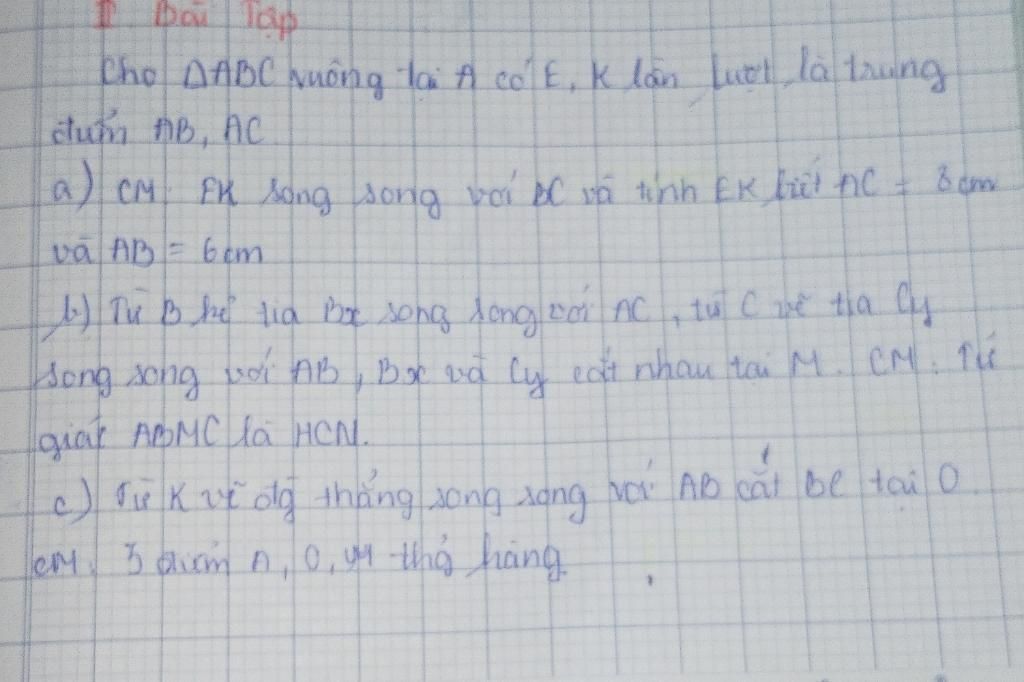 II Bài Tập
Cho ΔABC vuông tại A có E, K lần lượt là trung
điểm AB, AC
a) CM EK song song với BC và tính EK biết AC = 8cm
và AB = 6cm
b) Từ B kẻ tia Bx song song với AC, từ C vẽ tia Cy
song song với AB, Bx và Cy cắt nhau tại M. CM: Tứ
giác ABMC là HCN.
c) Từ K vẽ đg thẳng song song với AB cắt BC tại O
CM. 3 điểm A, O, M thẳ hàng.